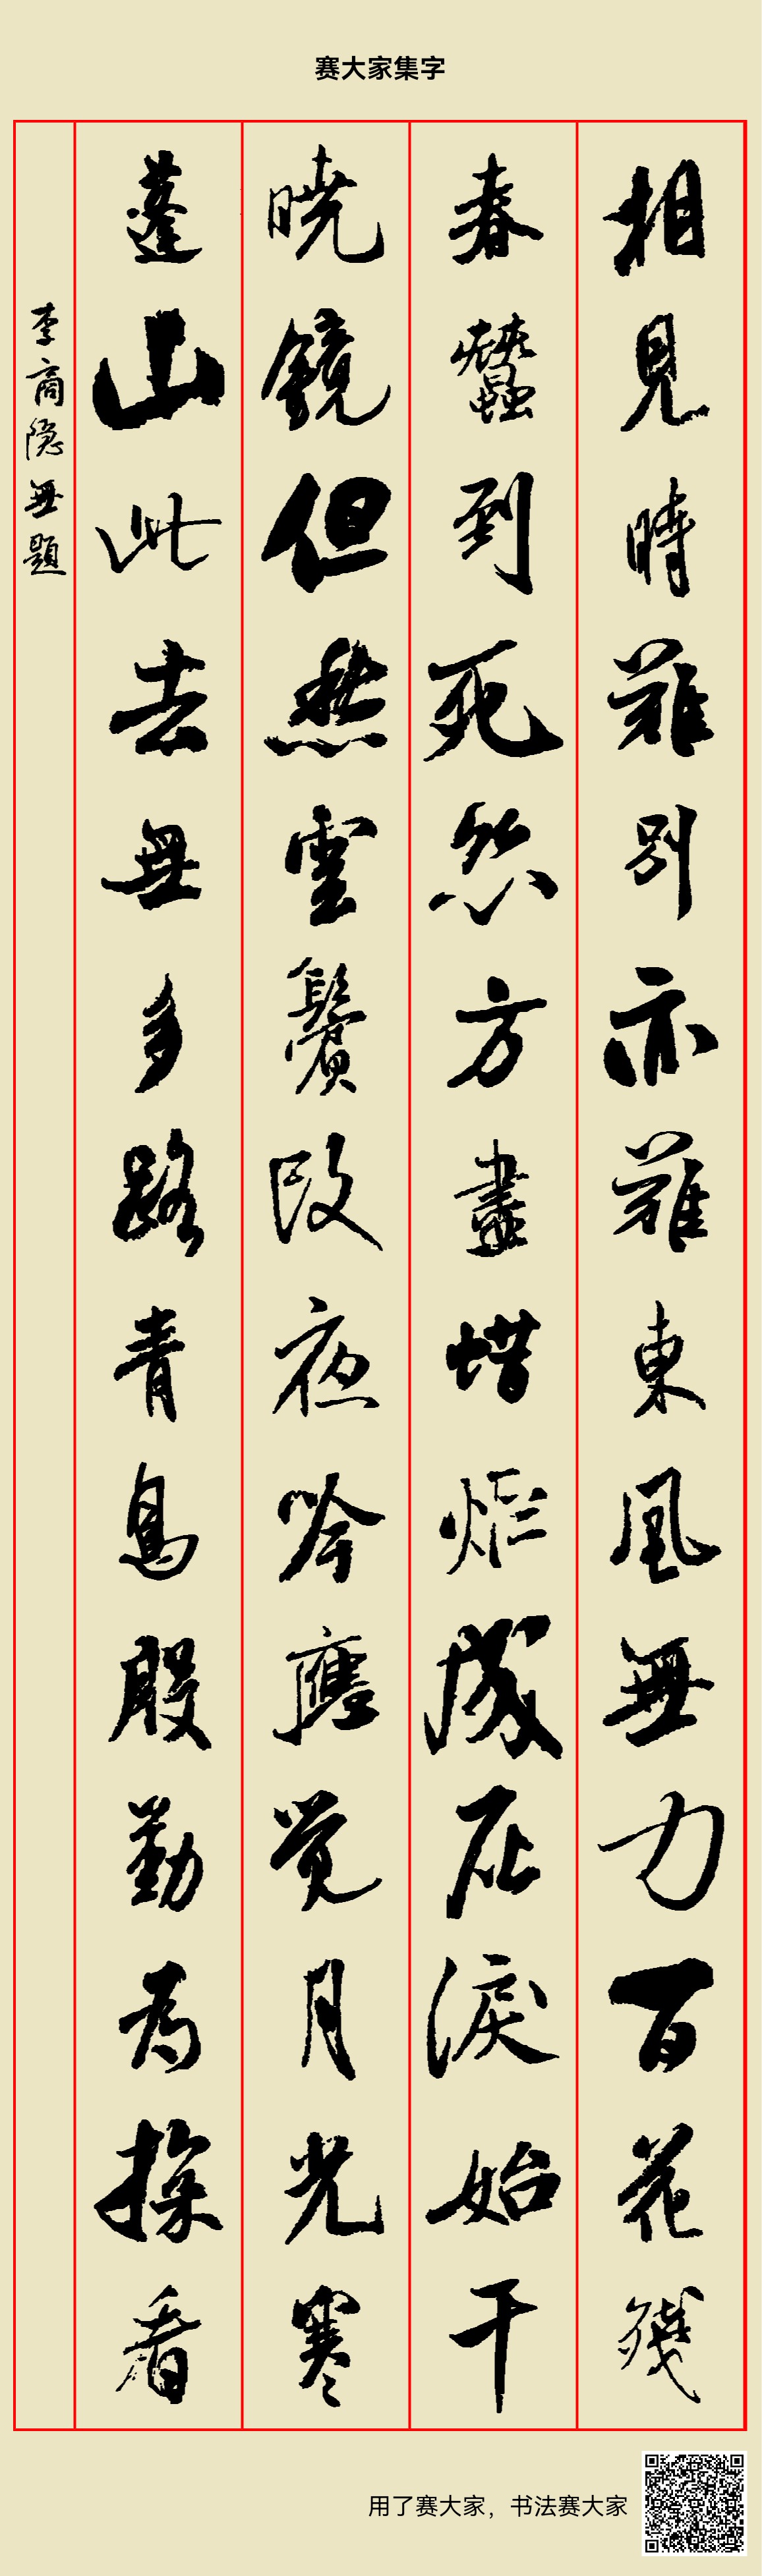 赛大家集字
相見時難別亦難東風無力百花殘
春蠶到死絲方盡蜡炬成灰淚始干
曉鏡但愁雲鬢改夜吟應覺月光寒
蓬山此去無多路青鳥殷勤為探看
李商隐無題
用了赛大家，书法赛大家